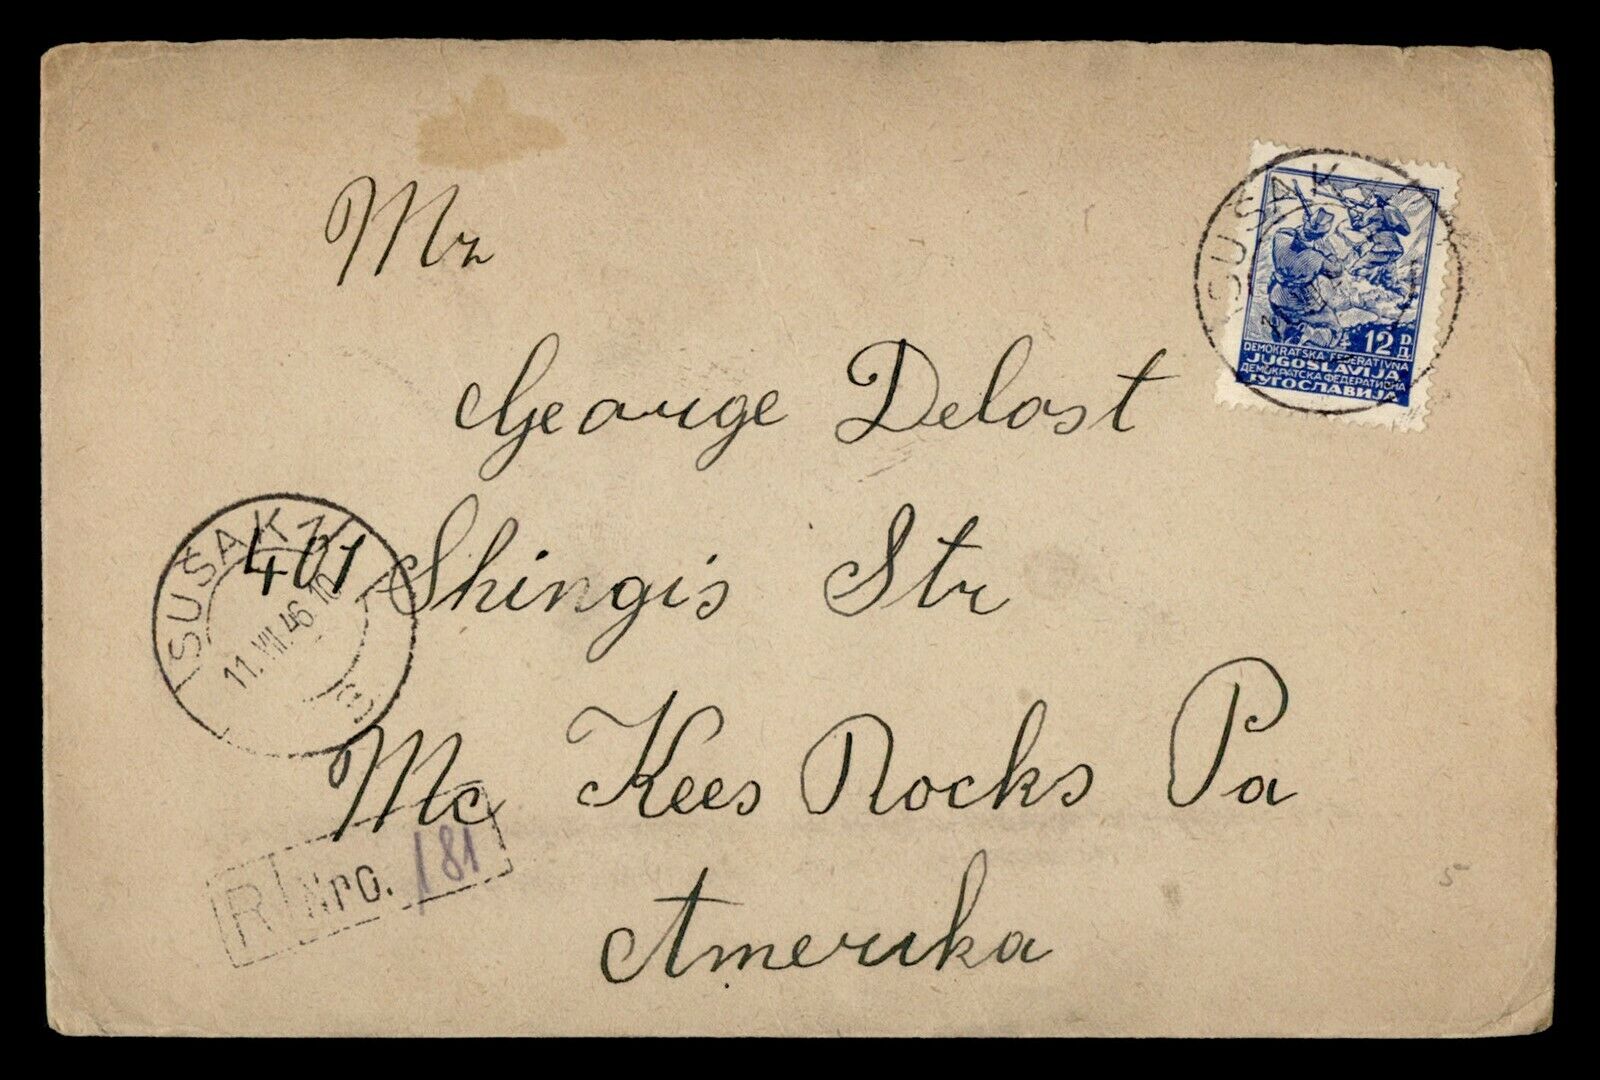 Mr
SUŠAK
12 D
Д
DEMOKRATSKA FEDERATIVNA
JUGOSLAVIJA
ДЕМОКРАТСКА ФЕДЕРАТИВНА
ЈУГОСЛАВИЈА
George Delost
401 Shingis Str
SUŠAK 1
11.VII.46 10
Mc Kees Rocks Pa
R Nro. 181
5
Amerika